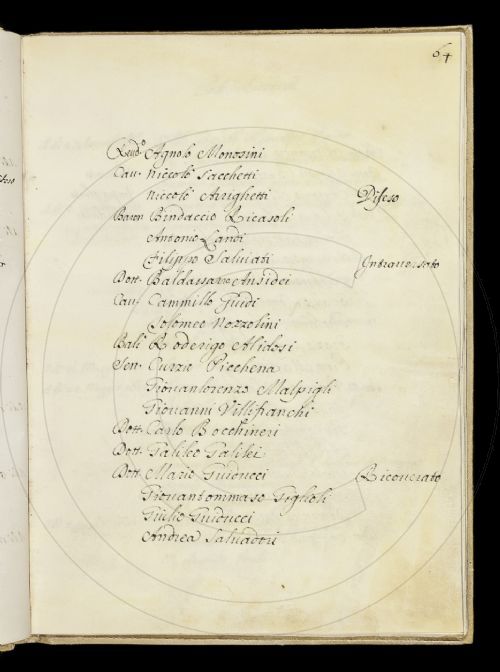 64
Reud.o Agnolo Monosini
Cau. Niccolò Sacchetti
Niccolò Arrighetti Difeso
Baron Bindaccio Ricasoli
Antonio Landi
Filippo Saluiati Intrauersato
Dott. Baldassarre Ansidei
Cau. Cammillo Guidi
Tolomeo Nozzolini
Balì Roderigo Alidosi
Sen. Curzio Picchena
Giouanlorenzo Malpigli
Giouanni Villifranchi
Dott. Carlo Bocchineri
Dott. Galileo Galilei
Dott. Mario Guiducci Ricourato
Giouantommaso Giglioli
Giulio Guiducci
Andrea Saluadori